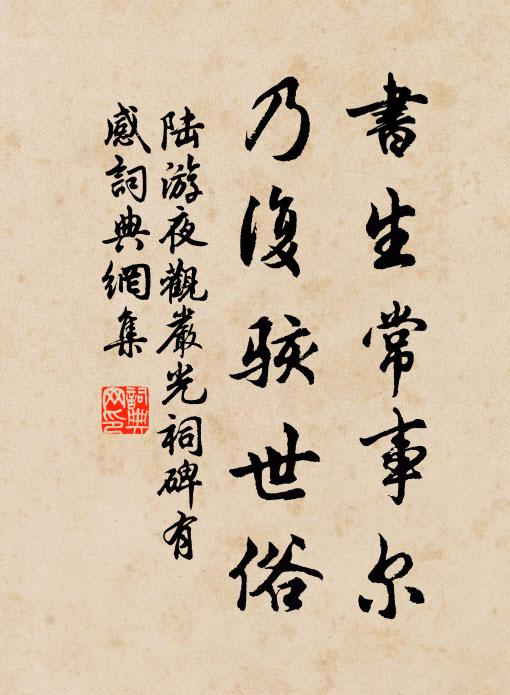 書生常事尔
乃復駭世俗
陆游夜觀嚴光祠碑有
感詞典網集
詞典
网印